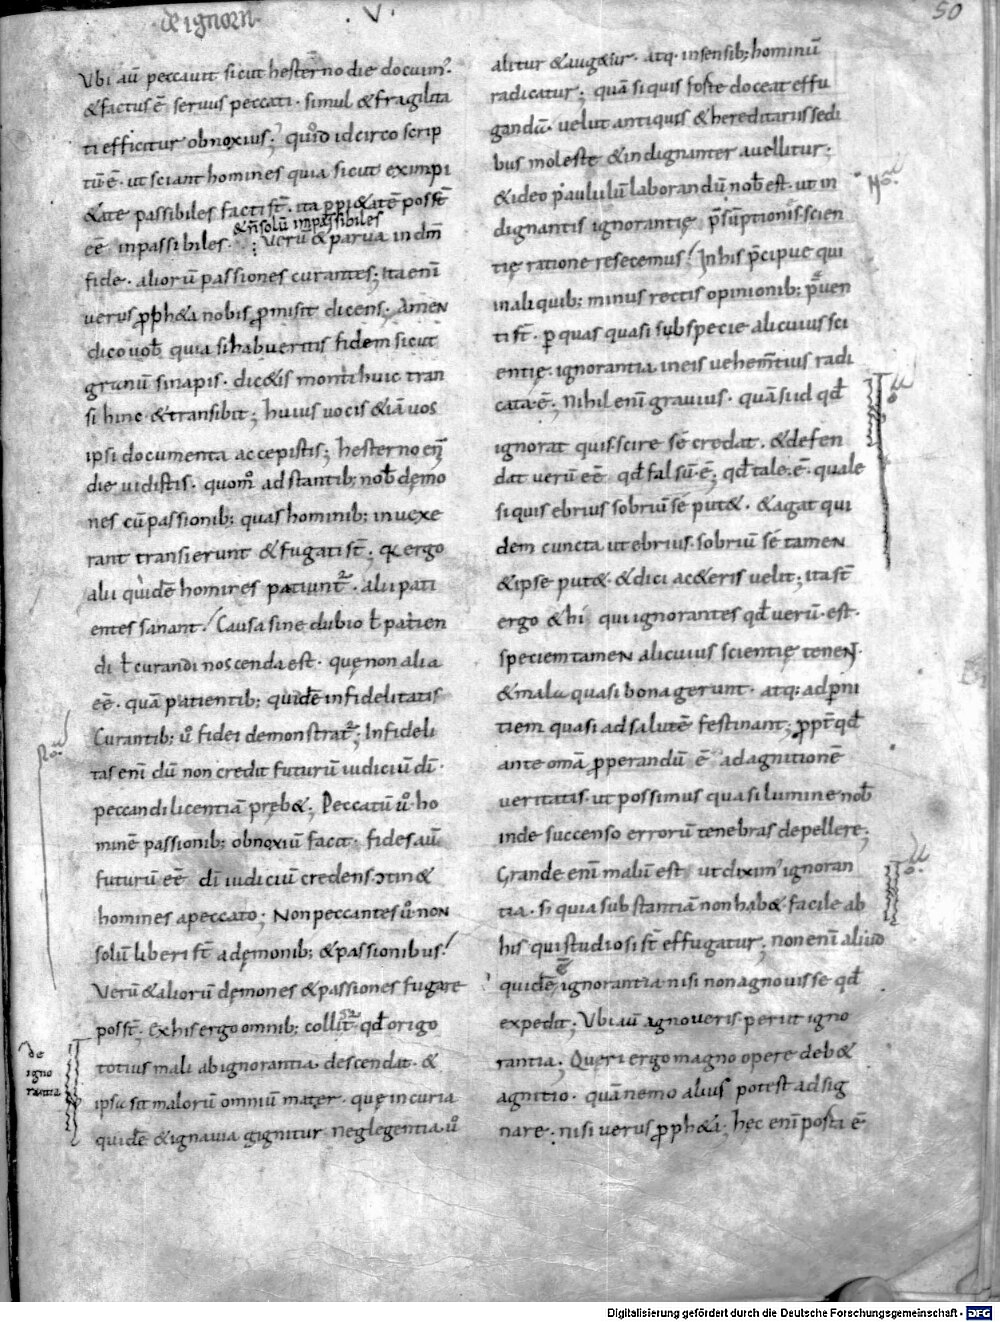 · V ·
50
Vbi aū peccauit sicut hesterno die docuim᷒
&factus ē seruus peccati · simul & fragilita
ti efficitur obnoxius; quōd idcirco scrip
tū ē · ut sciant homines quia sicut eximpi
&ate passibiles facti sīt · ita p̄pi&atē possīt
ēē inpassibiles · &n̄ solū inpassibiles ; Verū & parua in dm̄
fide · aliorū passiones curantes; ita enī
uerus ꝓph&a nobis ꝓmisit dicens; Amen
dico uob̄ quia si habueritis fidem sicut
granū sinapis · dic&is monti huic tran
si hinc & transibit; huius uocis &iā uos
ipsi documenta accepistis; hesterno enī
die uidistis · quom̄ adstantib; nob̄ demo
nes cū passionib; quas hominib; inuexe
rant transierunt & fugati sīt; Q̄a ergo
alii quidē homines patiunt᷒ · alii pati
entes sanant! Causa sine dubio t̄ patien
di t̄ curandi noscenda est · quę non alia
ēē · quā patientib; quidē infidelitatis
Curantib; ū fidei demonstrat᷒; Infideli
tas enī dū non credit futurū iudiciū dī ·
peccandi licentiā pręb&; Peccatū ū ho
minē passionib; obnoxiū facit · fides aū
futurū ēē dī iudiciū credens ↄtin&
homines a peccato; Non peccantes ū non
solū liberi sīt a dęmonib; & passionibus!
Verū & aliorū dęmones & passiones fugare
possīt; ex his ergo omnib; collit᷒ · qd̄ origo
totius mali ab ignorantia descendat · &
ipsa sit malorū omniū mater · quę incuria
quidē & ignauia gignitur neglegentia ū
de
igno
rantia
alitur & aug&ur · atq · insensib; hominū
radicatur; quā siquis forte doceat effu
gandā · uelut antiquis & hereditariis sedi
bus moleste & indignanter auellitur;
& ideo paululū laborandū nob̄ est · ut in
dignantis ignorantię p̄sūptionis scien
tię ratione resecemus! In his p̄cipue qui
in aliquib; minus rectis opinionib; p̄uen
ti sīt · ꝑ quas quasi sub specie alicuius sci
entię · ignorantia in eis uehem̄tius radi
cata ē; Nihil enī grauius · quā si id qd̄
ignorat quis scire sē credat · & defen
dat uerū ēē qd̄ falsū ē; qd̄ tale ē · quale
si quis ebrius sobriū sē put& · & agat qui
dem cuncta ut ebrius · sobriū sē tamen
& ipse put& · & dici ac&eris uelit; ita sīt
ergo & hi qui ignorantes qd̄ uerū est ·
speciem tamen alicuius scientię tenent ·
& mala quasi bona gerunt · atq; ad p̄ni
tiem quasi ad salutē festinant; ꝓpt̄ qd̄
ante omā ꝓperandū ē ad agnitionē
ueritatis · ut possimus quasi lumine nob̄
inde succenso errorū tenebras depellere;
Grande enī malū est ut diximᷣ ignoran
tia · si quia substantiā non hab& facile ab
his qui studiosi sīt effugatur; non enī aliud
quidē ē ignorantia nisi non agnouisse qd̄
expedit; Vbi aū agnoueris · perit igno
rantia; Queri ergo magno opere deb&
agnitio · quā nemo alius potest adsig
nare · nisi uerus ꝓph&a; hęc enī posti ē
Digitalisierung gefördert durch die Deutsche Forschungsgemeinschaft · DFG